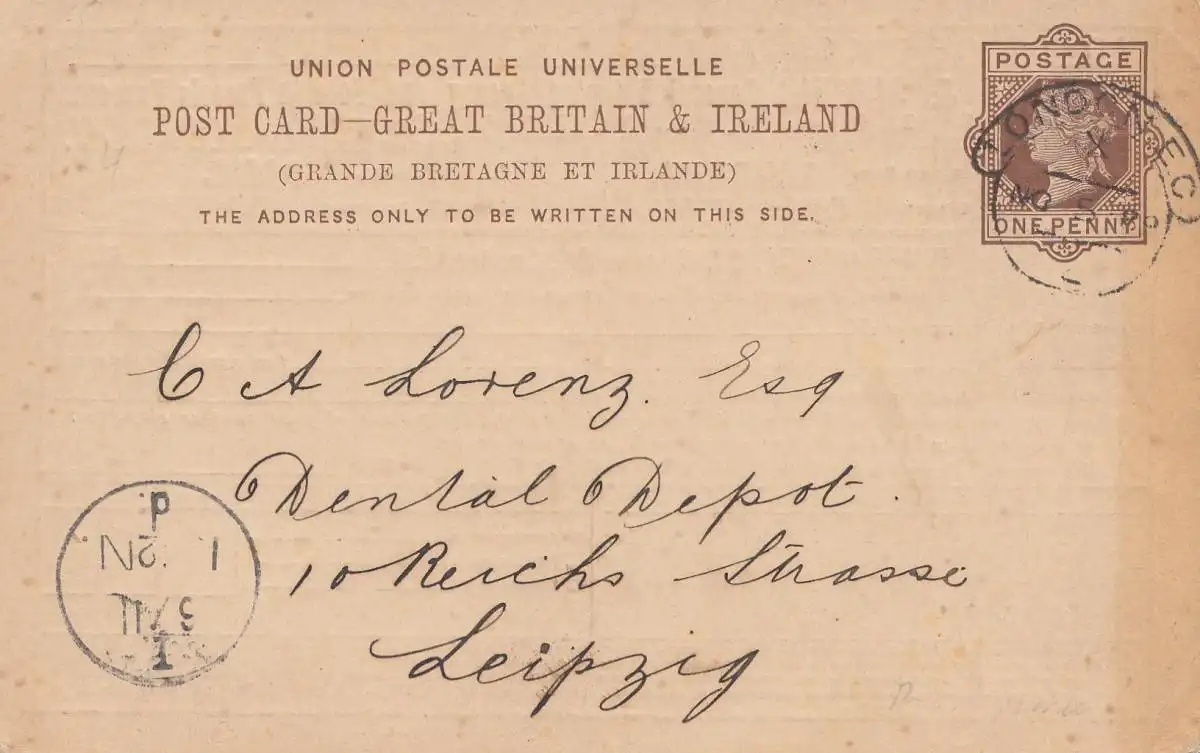 UNION POSTALE UNIVERSELLE
POST CARD—GREAT BRITAIN & IRELAND
(GRANDE BRETAGNE ET IRLANDE)
THE ADDRESS ONLY TO BE WRITTEN ON THIS SIDE.
POSTAGE
ONE PENNY
LONDON E.C
X
NO
C A Lorenz. Esq
Dental Depot.
10 Reichs Strasse
Leipzig